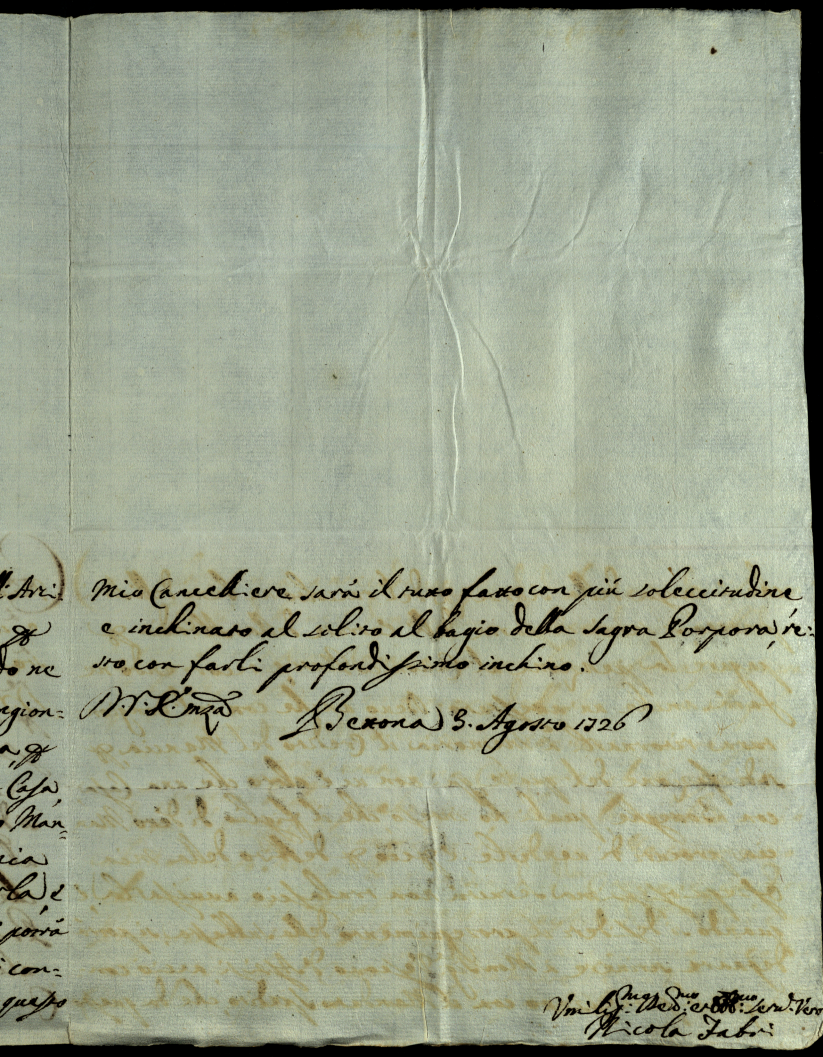 l: Arci:
do ne
ngion:
a,
Casa,
o Man=
cia
rla, è
porrà
i con:
questo
mio Cancelliere sarà il tutto fatto con più soleccitudine
e inchinato al solito al bagio della Sagra Porpora, re:
sto con farli profondissimo inchino.
D. V. Em.za
Bettona 3. Agosto 1726
Umiliss.mo Dev.mo et Obb.mo Serv.e Vero
Nicola Fabri